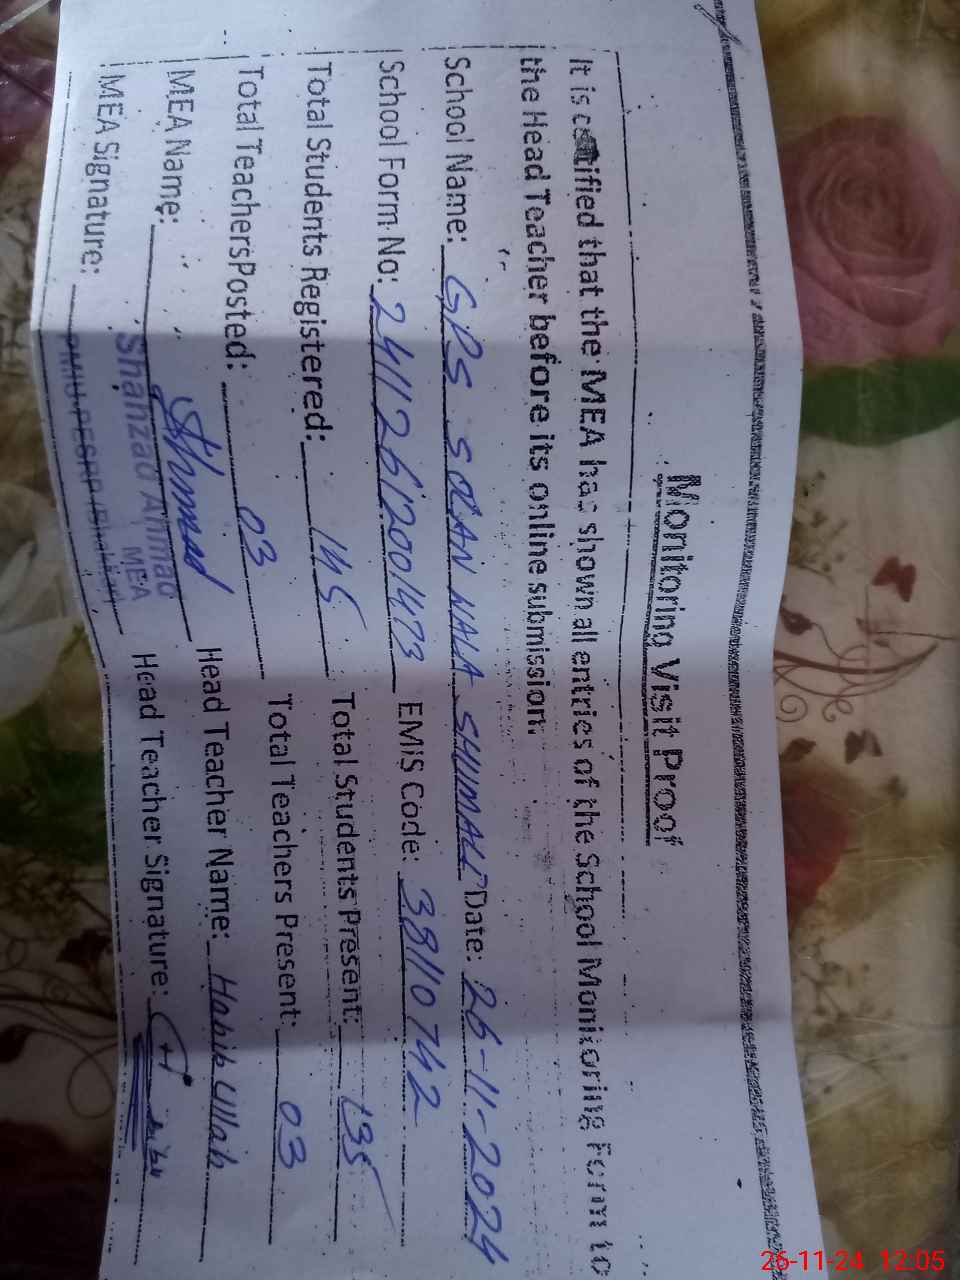 Monitoring Visit Proof
It is certified that the MEA has shown all entries of the School Monitoring Form to
the Head Teacher before its online submission.
School Name: GPS SOLAN WALA SHUMALI Date: 26-11-2024
School Form No: 241126120001473 EMIS Code: 38110742
Total Students Registered: 145 Total Students Present: 135
Total TeachersPosted: 03 Total Teachers Present: 03
MEA Name: Head Teacher Name: Habib Ullah
MEA Signature: Head Teacher Signature:
Shahzad Ahmad
MEA
26-11-24 12:05